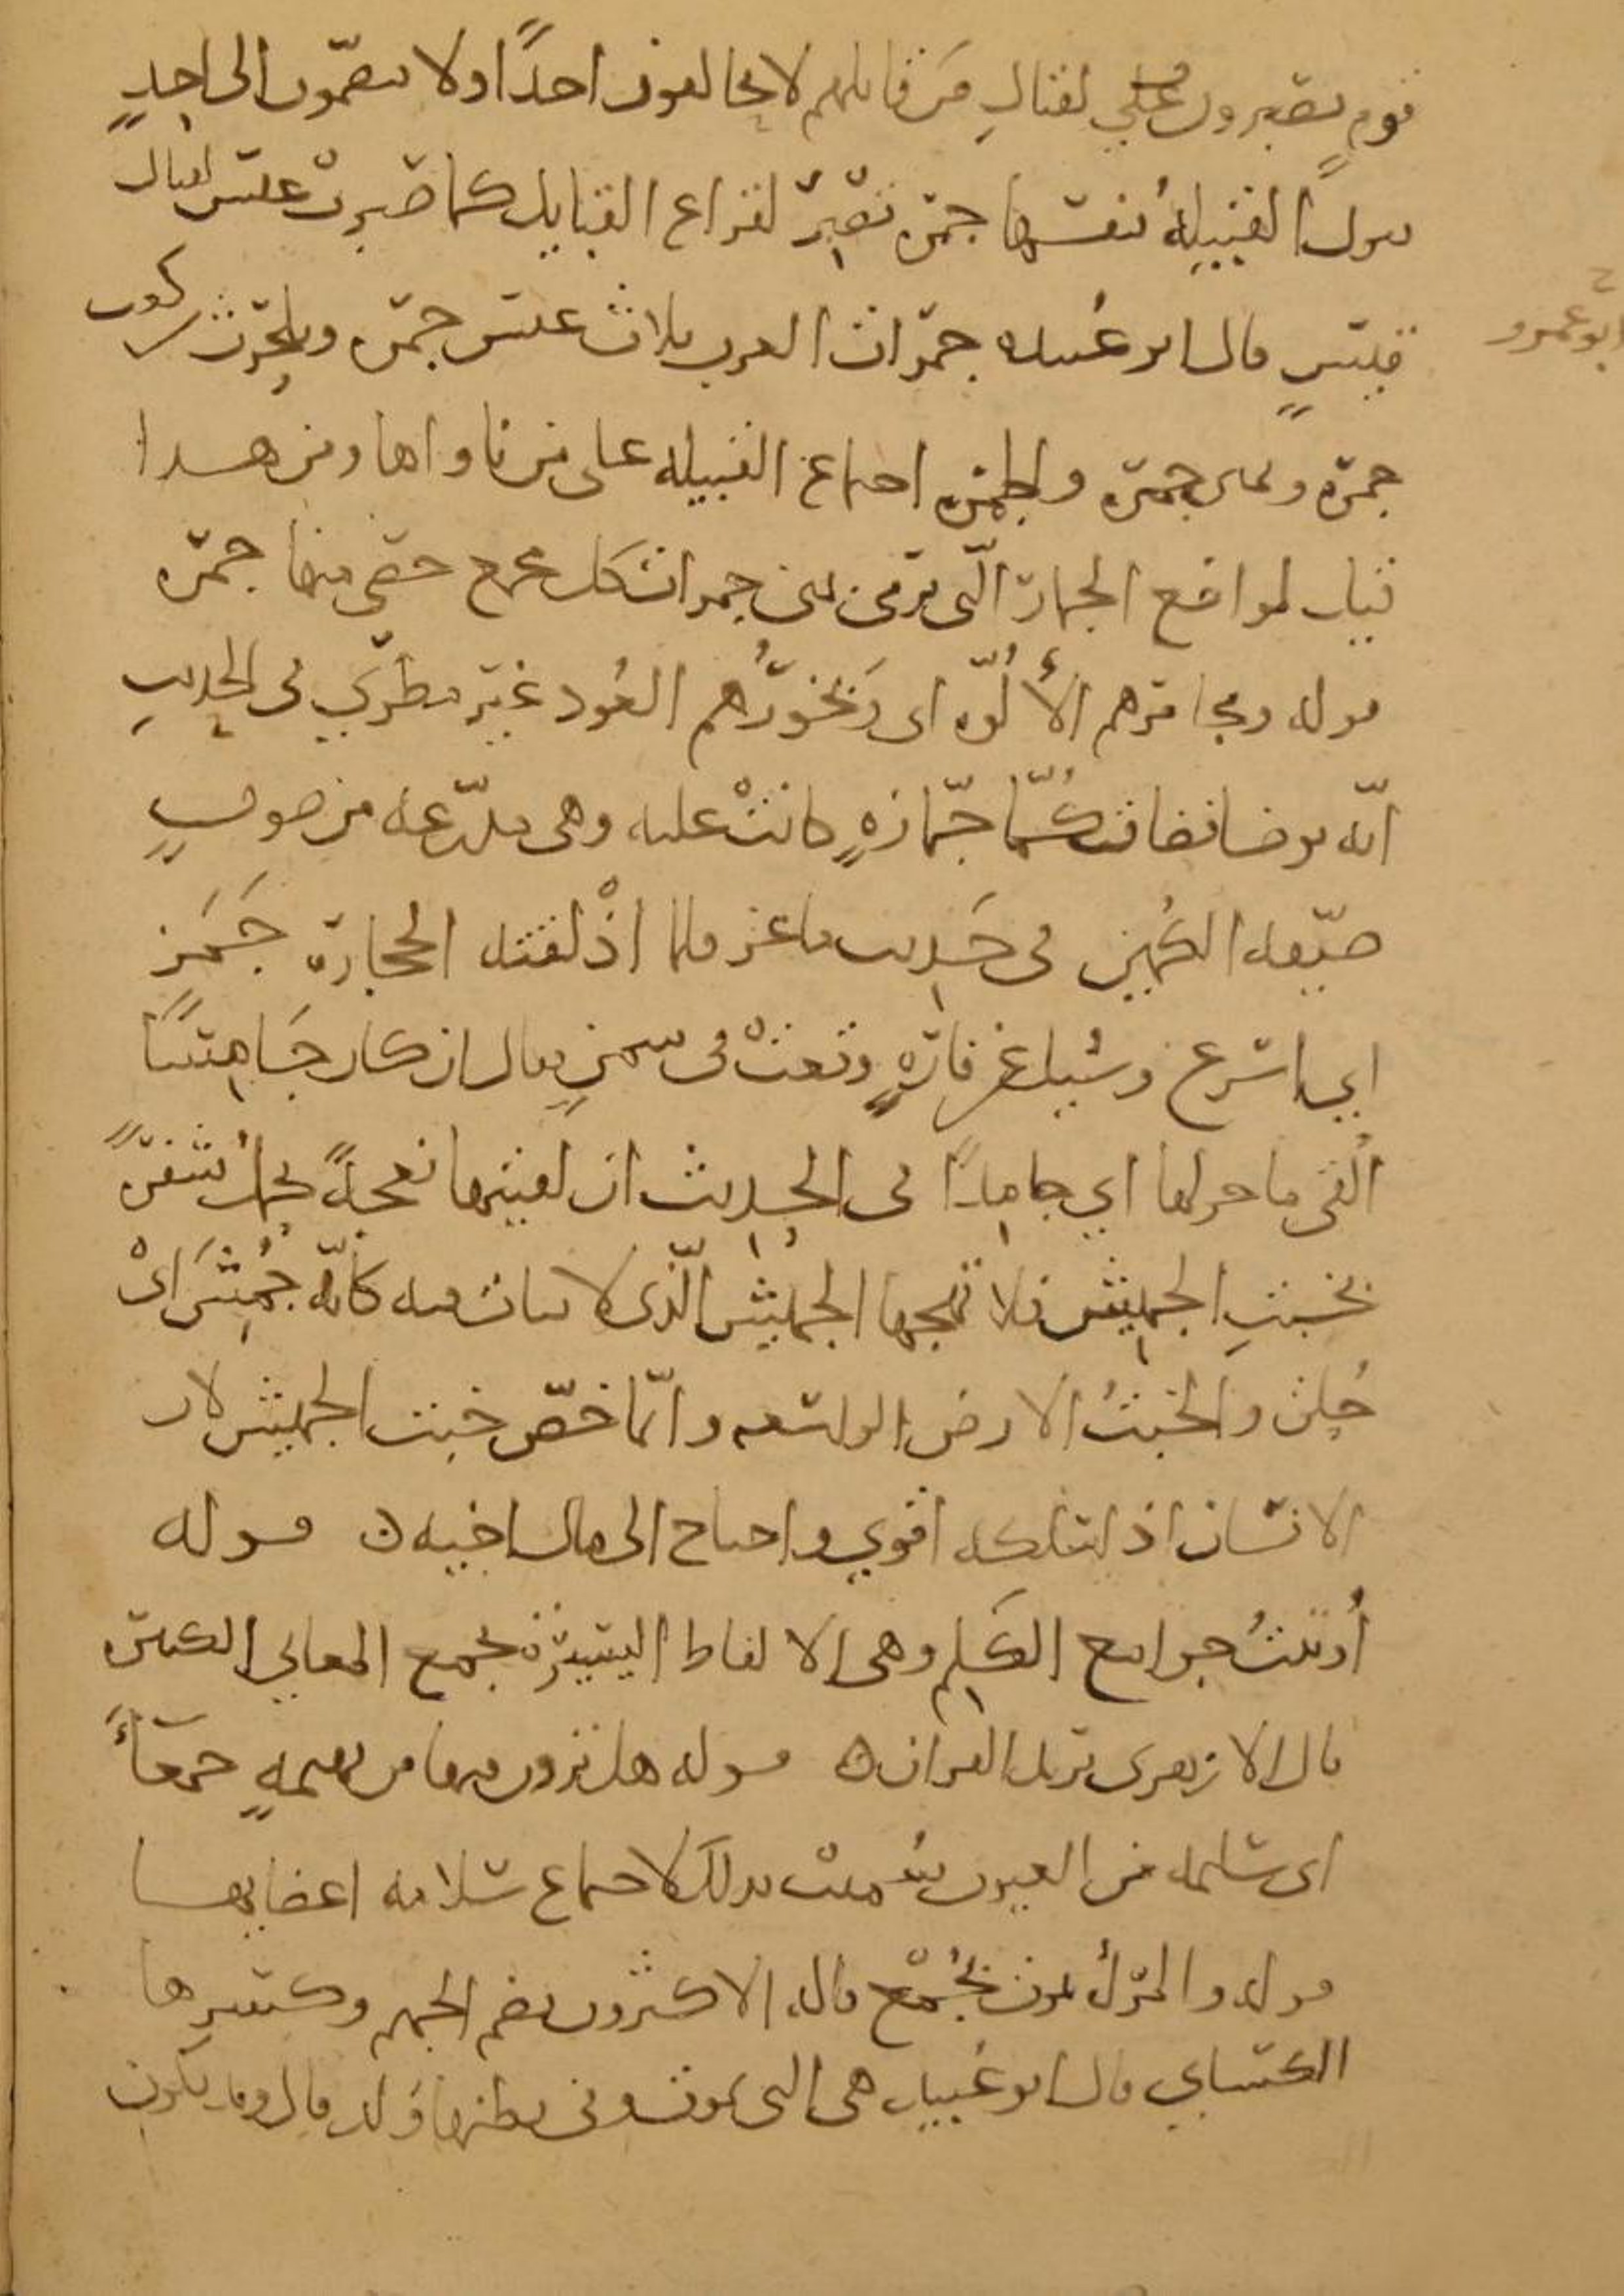 قوم يصبرون على لقتال من قاتلهم لا يحالفون احدًا ولا ينضمّون الى احدٍ
تكون القبيلةُ نفسها جمرة تصبِر لقراع القبايل كما صبرتْ عبس لقبايل
قيسٍ قال ابو عبيده جمرات العرب ثلاث عبس جمرة وبلحرث بن كعب
ابو عمرو
جمرة ونمير جمرة والجمرة اجتماع القبيلة على من ناواها ومن هذا
قيل لمواضع الجمار الّتي ترمى بمنى جمرات كل مجمع حصى منها جمرة
قوله ومجامرهم الأُلُوّة اى وبَخورُهم العُود غير مطرّى فى الحديث
انّه توضا فضاق كُمّا جمّازةٍ كانتْ عليه وهى مدرّعة من صوفٍ
ضيّقة الكمين فى حَديث ماعز فلما اذْلقته الحجارة جَمَز
اي اسرع وسُيل عن فارةٍ وقعتْ فى سمنٍ فقال ان كان جَامِسًا
اُلقى ما حولها اي جامِدًا فى الحديث ان لقيتها نعجةً تحمل شفرةً
بخبتِ الجميش فلا تهجها الجميش الّذى لا نبات فيه كانّه جُمِشَ اىْ
حُلق والخبتُ الارض الواسعه وانّما خصّ خبت الجميش لان
الانسان اذا سلكه اقوى واحتاج الى مال اخيه ه قوله
أُوتيتُ جوامع الكَلِم وهى الالفاظ اليسيرة تجمع المعاني الكثيرة
قال الازهرى يريد القران ه قوله هل ترون فيها من بهيمةٍ جمعآءَ
اى سليمه من العيوب سُميت بذلك لاجتماع سلامة اعضايها
قوله والمرأة تموت بجُمْع قاله الاكثرون بضم الجيم وكسرها
الكسايي قال ابو عُبيد هى التى تموت وفى بطنها وَلد قال وقد يكون